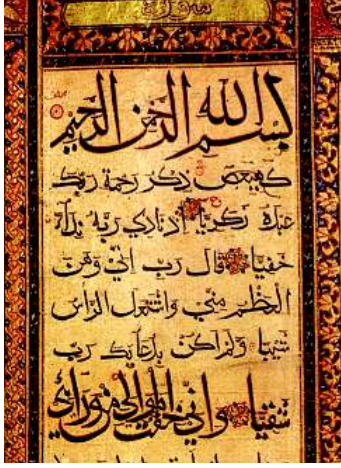 سورة
بسم الله الرحمن الرحيم
كهيعص ذكر رحمة ربك
عبده زكريا إذ نادى ربه نداء
خفيا قال رب إني وهن
العظم مني واشتعل الرأس
شيبا ولم أكن بدعائك رب
شقيا وإني خفت الموالي من ورائي